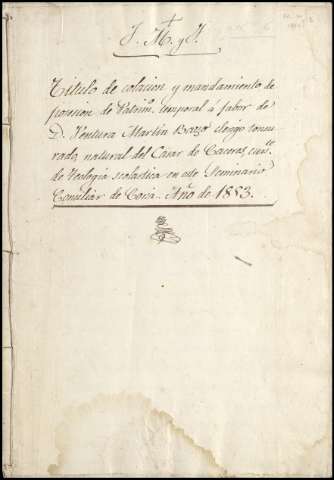 J. M. y J.
Título de colacion y mandamiento de
posesion de Patrim. temporal á fabor de
D. Ventura Martin Brazo clerigo tonsu-
rado, natural del Casar de Caceres, curs.te
de Teologia scolastica en este Seminario
Conciliar de Coria. Año de 1853.